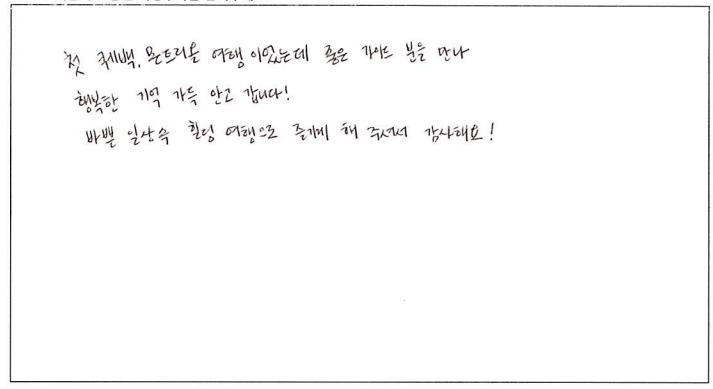 첫 퀘백, 몬트리올 여행이었는데 좋은 가이드 분을 만나
행복한 기억 가득 안고 갑니다!
바쁜 일상속 힐링 여행으로 즐기게 해 주셔서 감사해요!